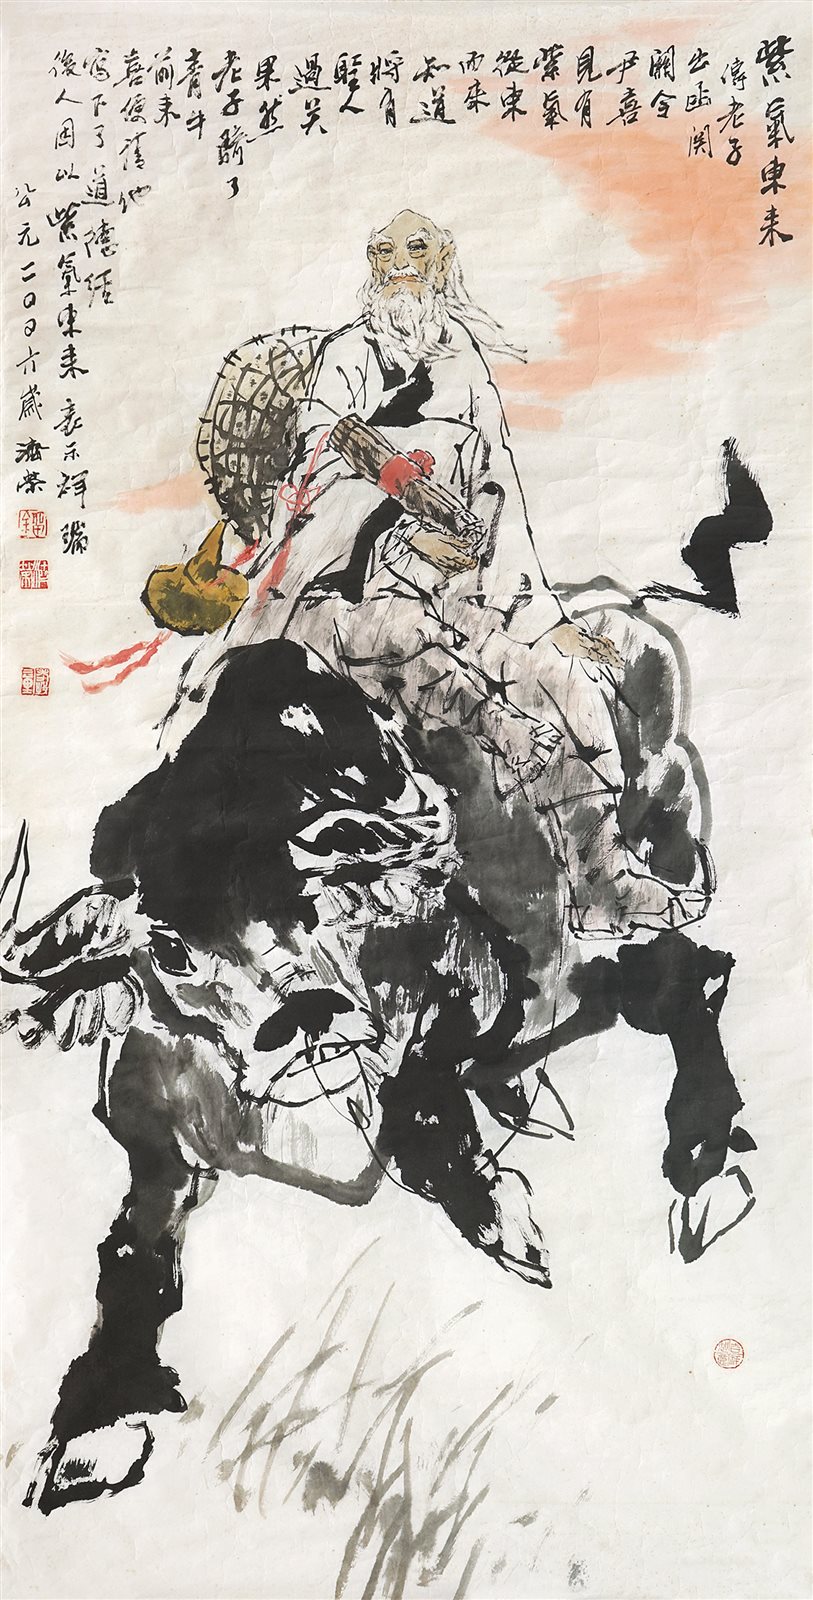 紫氣東来
傳老子
出函関
關令
尹喜
見有
紫氣
從東
而来
知道
將有
聖人
過关
果然
老子騎了
青牛
前来
喜便請他
寫下了道德经
後人因以紫氣東来表示祥瑞
公元二〇〇六歲濟榮